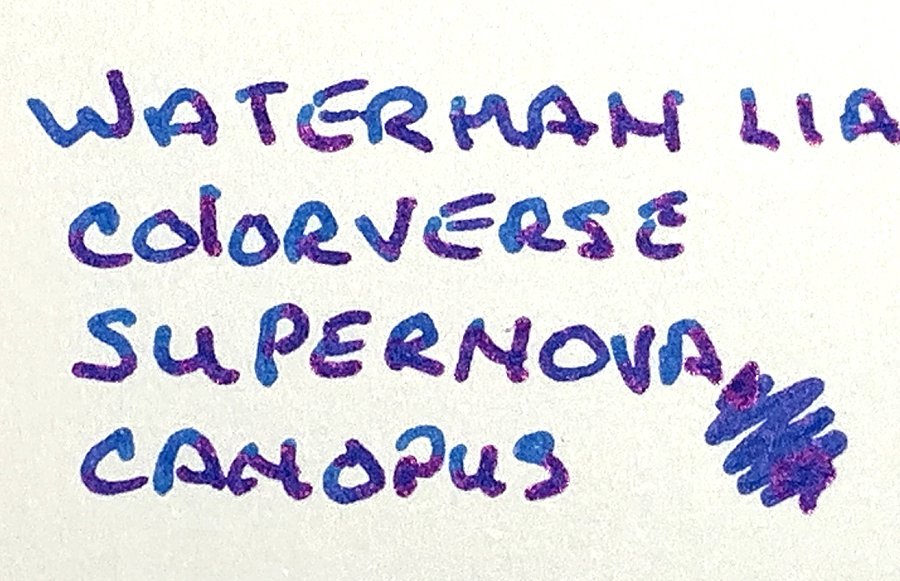 WATERMAN LIA
COlORVERSE
SUPERNOVA
CANOPUS